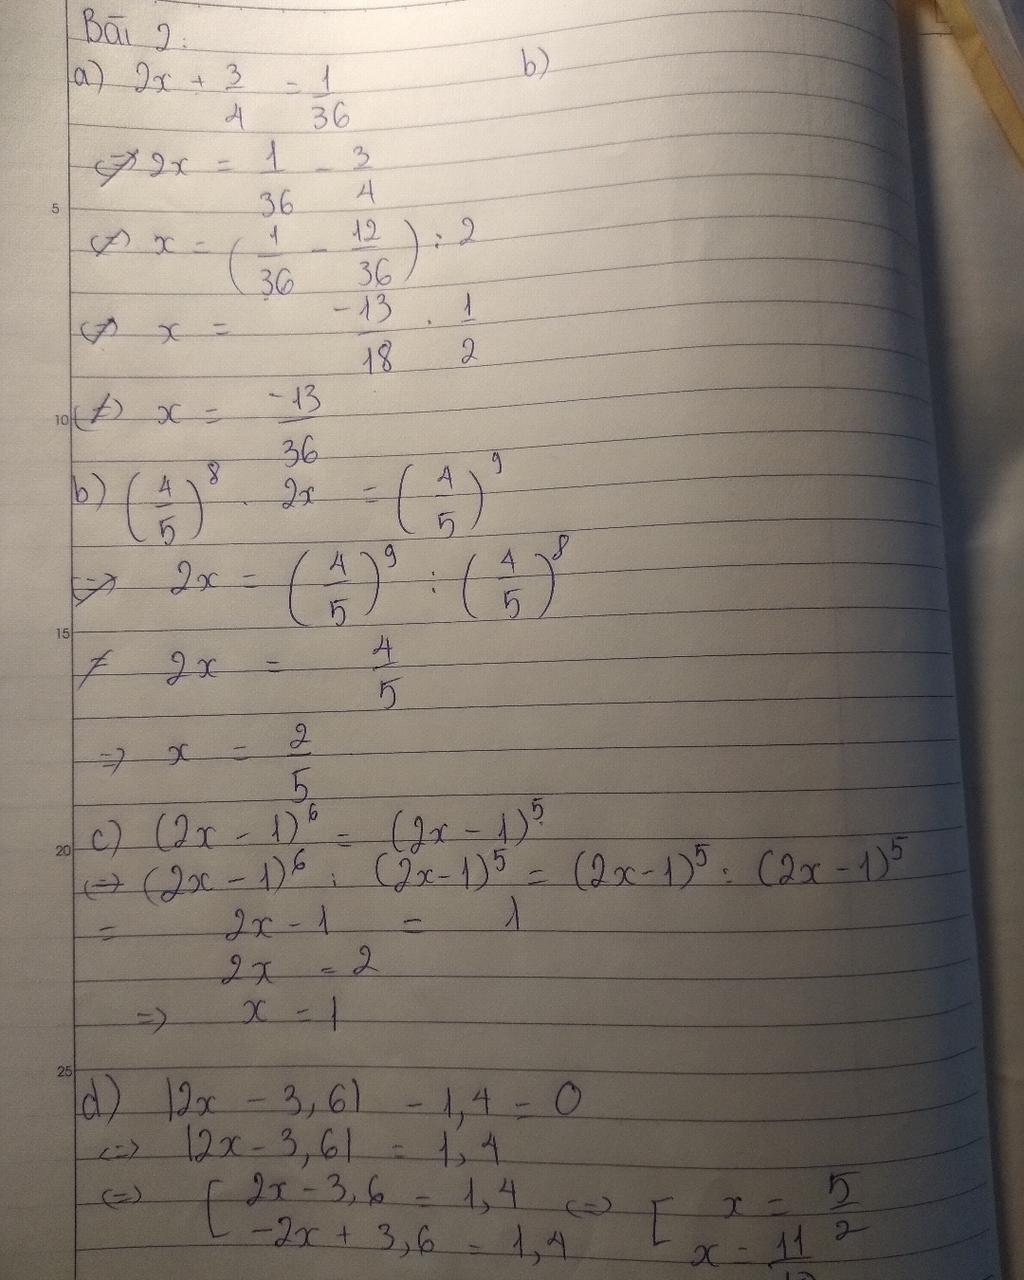 Bài 2:
a) 2x + 3/4 = 1/36 b)
<=> 2x = 1/36 - 3/4
5
<=> x = (1/36 - 12/36) : 2
<=> x = -13/18 . 1/2
10 <=> x = -13/36
b) (4/5)^8 . 2x = (4/5)^9
<=> 2x = (4/5)^9 : (4/5)^8
15
≠ 2x = 4/5
=> x = 2/5
c) (2x - 1)^6 = (2x - 1)^5
20
<=> (2x - 1)^6 : (2x - 1)^5 = (2x - 1)^5 : (2x - 1)^5
= 2x - 1 = 1
2x = 2
=> x = 1
25
d) |2x - 3,6| - 1,4 = 0
<=> |2x - 3,6| = 1,4
<=> [ 2x - 3,6 = 1,4 <=> [ x = 5/2
-2x + 3,6 = 1,4 x = 11/